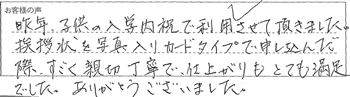 お客様の声
昨年、子供の入学内祝で利用させて頂きました。
挨拶状を写真入りカードタイプで申し込んだ
際、すごく親切丁寧で、仕上がりもとても満足
でした。ありがとうございました。